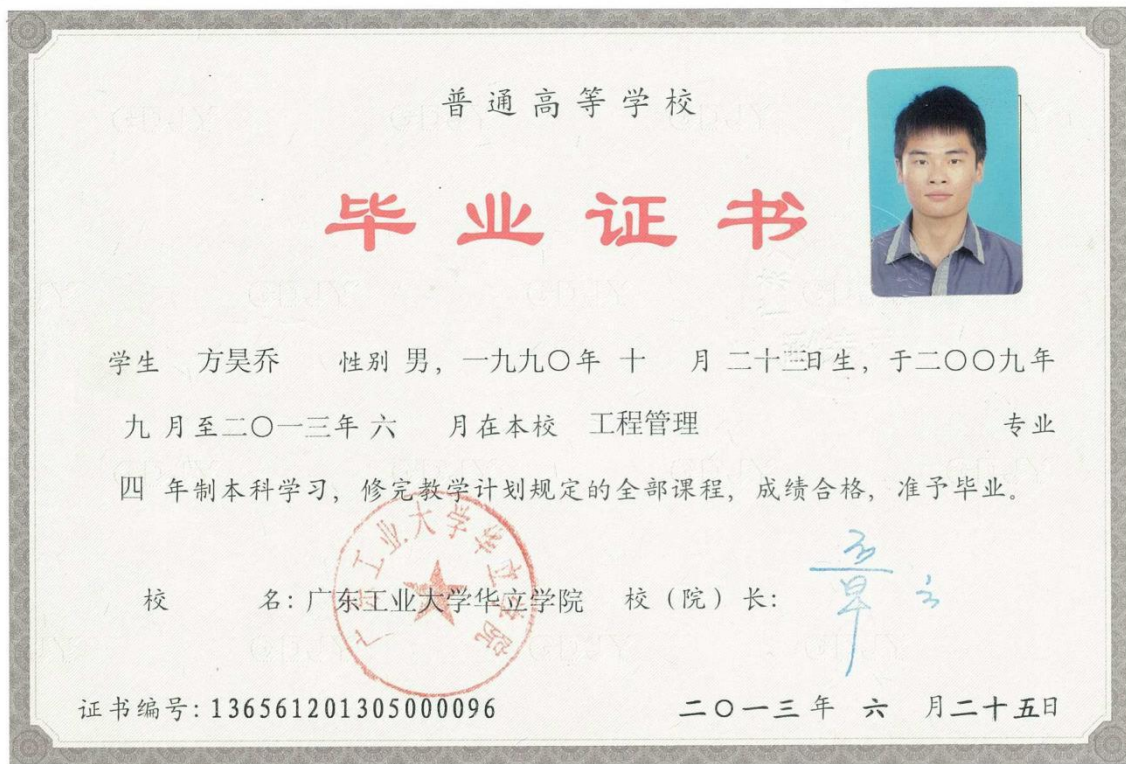 普通高等学校
毕业证书
学生 方昊乔 性别 男，一九九〇年 十 月 二十三日生，于二〇〇九年
九 月至二〇一三年 六 月在本校 工程管理 专业
四 年制本科学习，修完教学计划规定的全部课程，成绩合格，准予毕业。
广东工业大学华立学院
校 名：广东工业大学华立学院 校（院）长：
证书编号：136561201305000096 二〇一三年 六 月二十五日